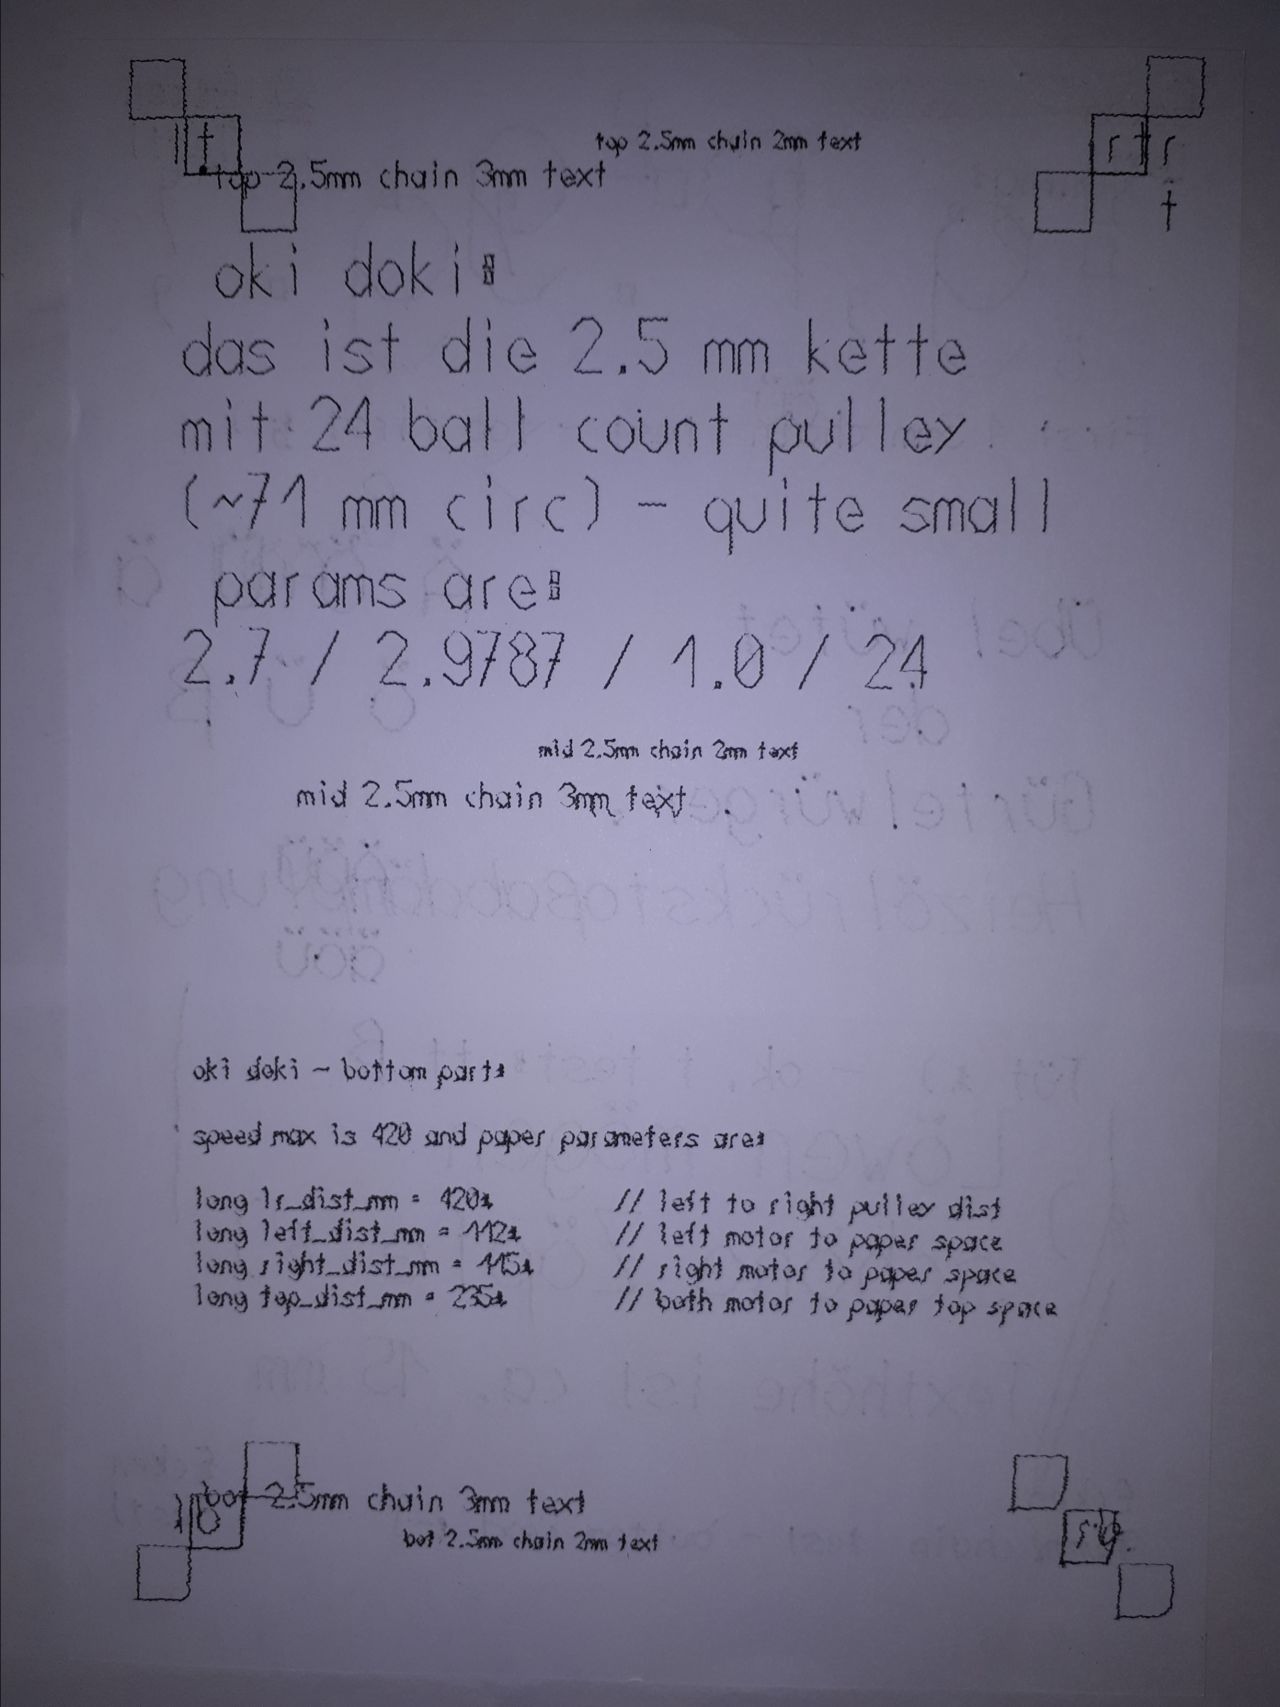 top 2.5mm chain 2mm text
lt
rt r
top 2.5mm chain 3mm text
t
oki doki:
das ist die 2.5 mm kette
mit 24 ball count pulley
(~71 mm circ) - quite small
params are:
2.7 / 2.9787 / 1.0 / 24
mid 2.5mm chain 2mm text
mid 2.5mm chain 3mm text
oki doki - bottom part:
speed max is 420 and paper parameters are:
long lr_dist_mm = 420; // left to right pulley dist
long left_dist_mm = 112; // left motor to paper space
long right_dist_mm = 115; // right motor to paper space
long top_dist_mm = 235; // both motor to paper top space
bot 2.5mm chain 3mm text
lb
bot 2.5mm chain 2mm text